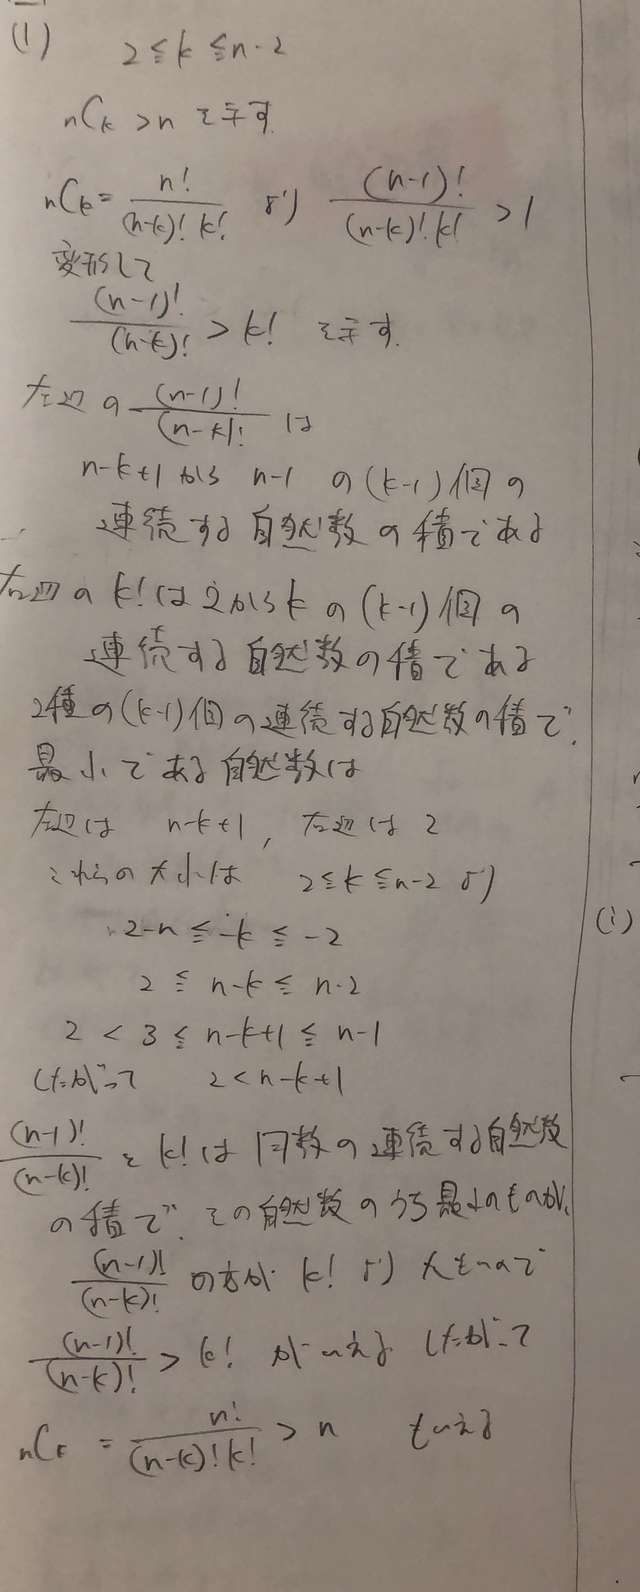 (1) 2≦k≦n-2
nCk >n を示す
nCk = n!/(n-k)! k! より (n-1)!/(n-k)! k! >1
変形して
(n-1)!/(n-k)! > k! を示す.
左辺の (n-1)!/(n-k)! は
n-k+1 から n-1 の (k-1) 個の
連続する自然数の積である
右辺の k! は 2から k の (k-1) 個の
連続する自然数の積である
2種の (k-1) 個の連続する自然数の積で,
最小である自然数は
左辺は n-k+1 , 右辺は 2
これらの大小は 2≦k≦n-2 より
2-n ≦ -k ≦ -2
2 ≦ n-k ≦ n-2
2 < 3 ≦ n-k+1 ≦ n-1
したがって 2 < n-k+1
(n-1)!/(n-k)! と k! は同数の連続する自然数
の積で, その自然数のうち最小のものが,
(n-1)!/(n-k)! の方が k! より大きいので
(n-1)!/(n-k)! > k! がいえる したがって
nCk = n!/(n-k)! k! > n もいえる
(i)